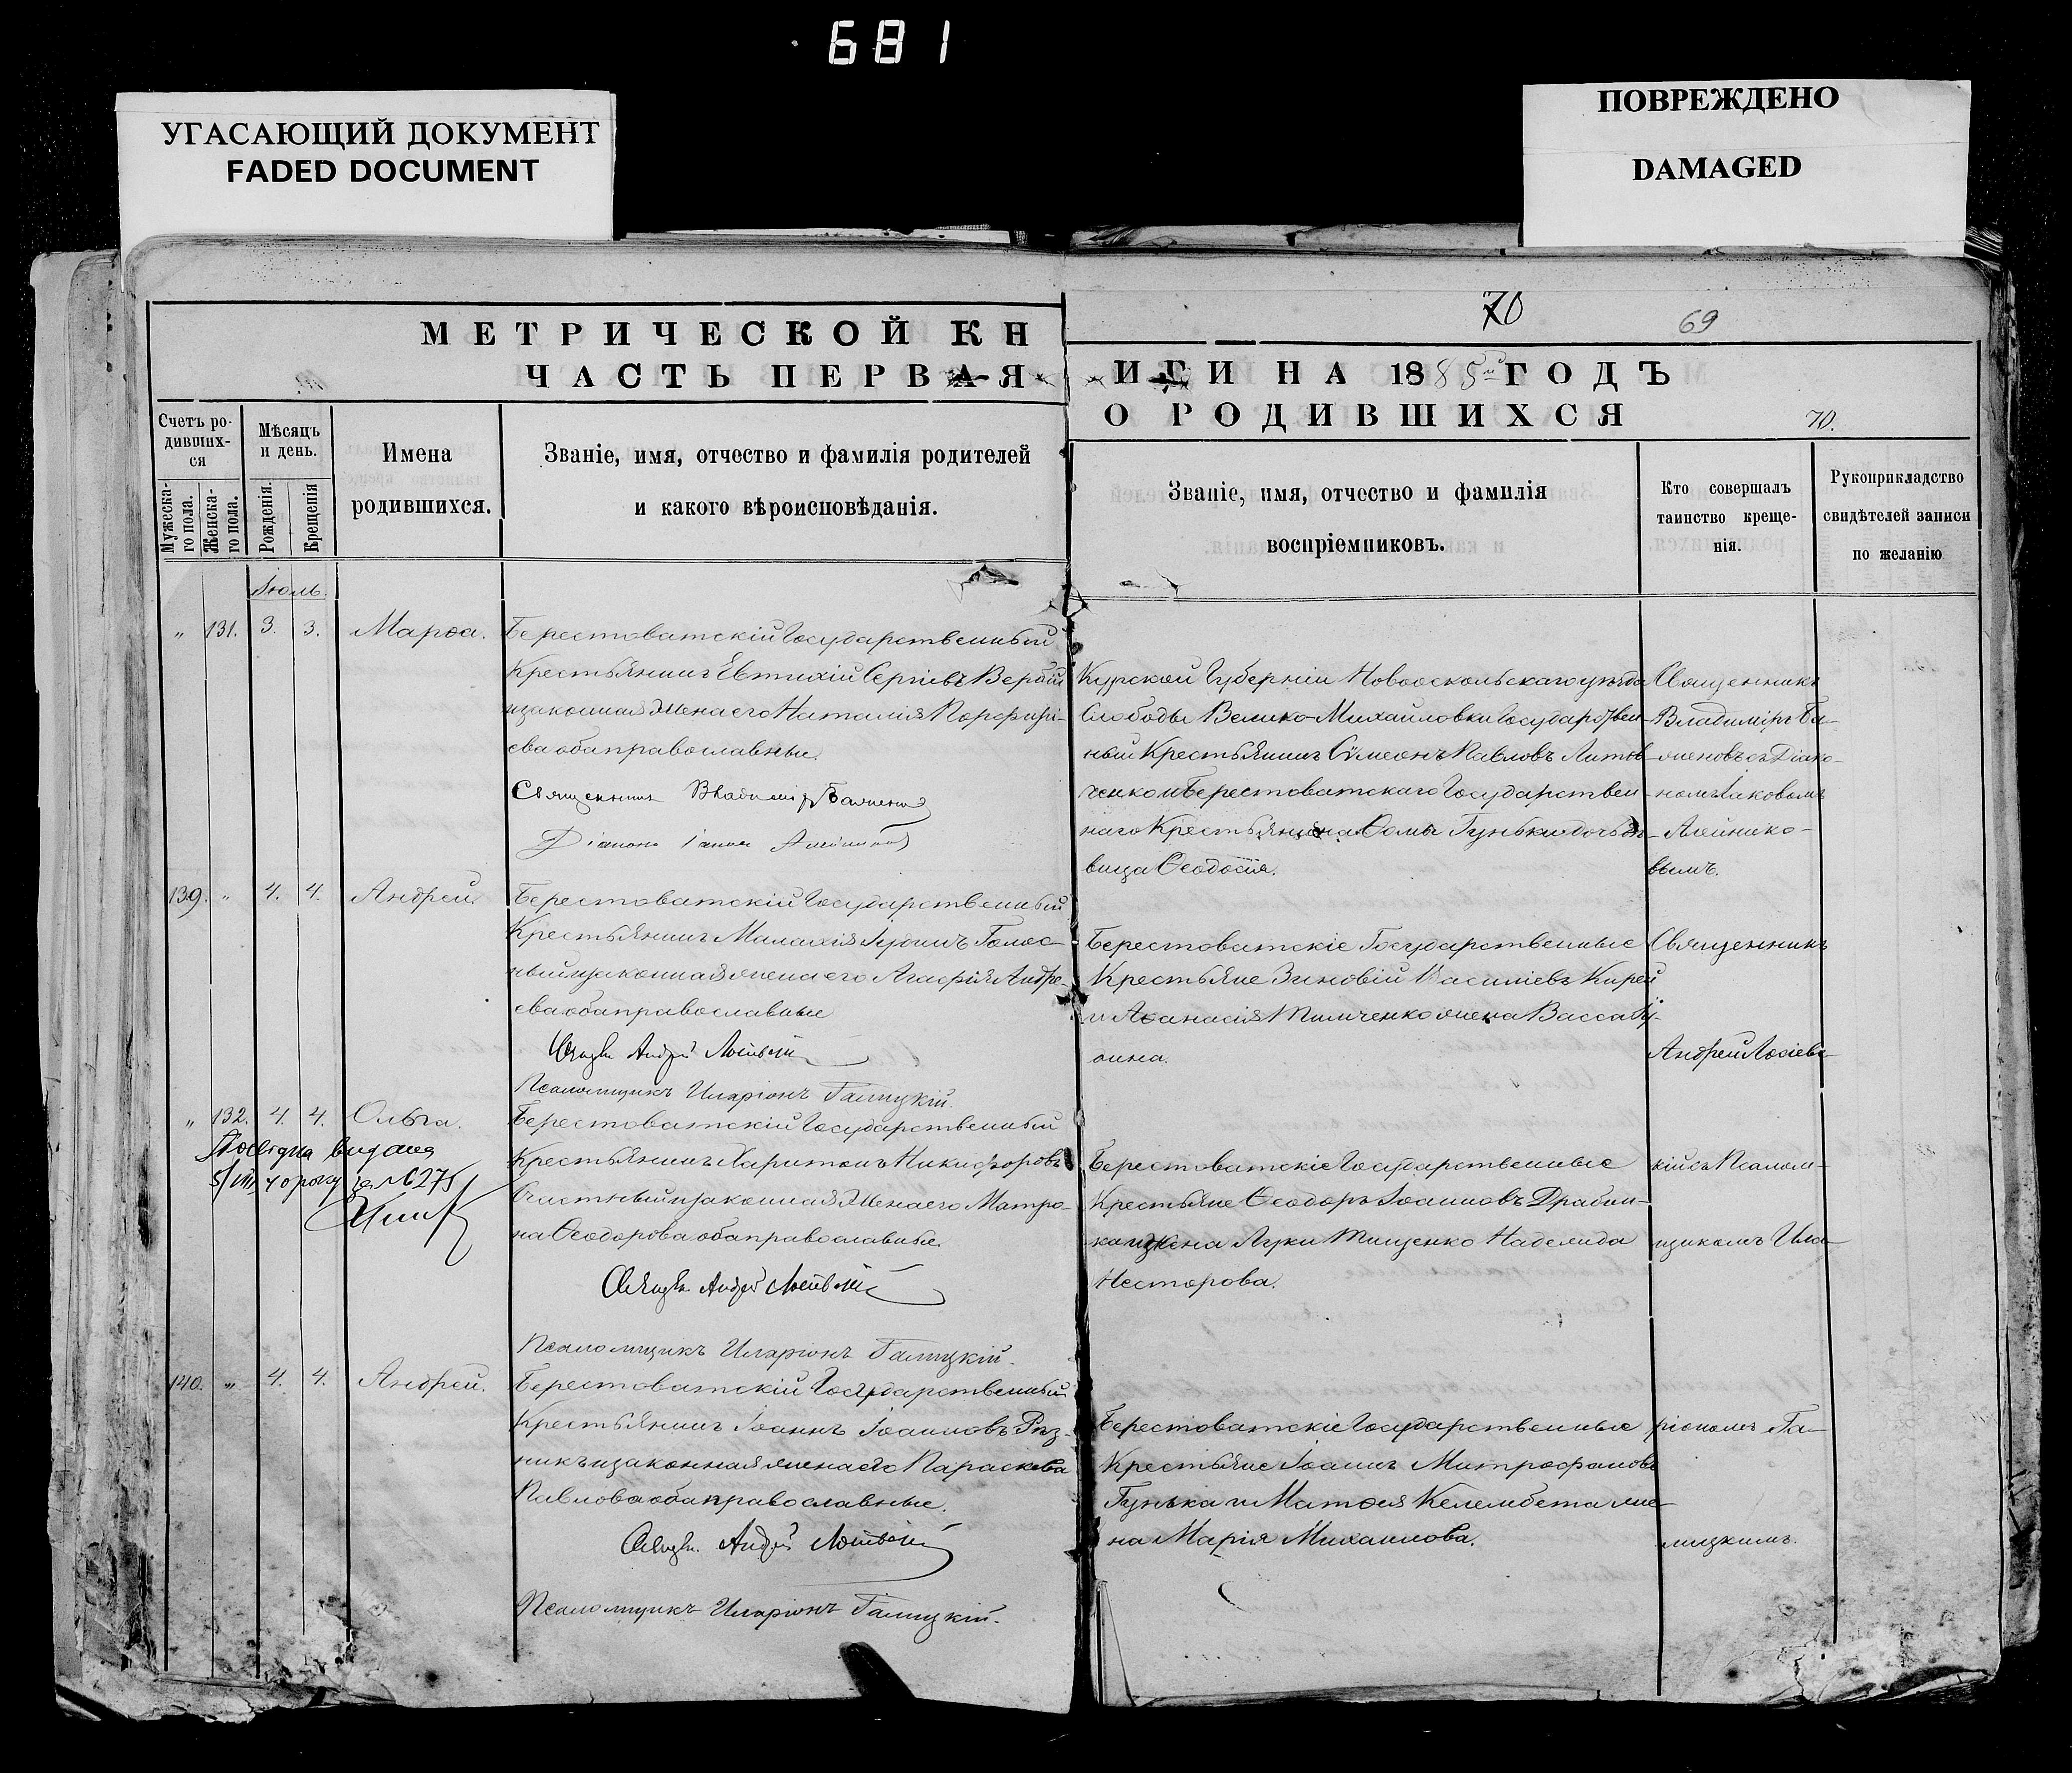 681
УГАСАЮЩИЙ ДОКУМЕНТ
FADED DOCUMENT
ПОВРЕЖДЕНО
DAMAGED
МЕТРИЧЕСКОЙ КН
ЧАСТЬ ПЕРВАЯ
70
69
ИГИ НА 1885 ГОДЪ
О РОДИВШИХСЯ
70.
Счетъ ро-
дивших-
ся
Мужеска-
го пола.
Женска-
го пола.
Мѣсяцъ
и день.
Рожденія.
Крещенія
Имена
родившихся.
Званіе, имя, отчество и фамилія родителей
и какого вѣроисповѣданія.
Званіе, имя, отчество и фамилія
воспріемниковъ.
Кто совершалъ
таинство креще-
нія.
Рукоприкладство
свидѣтелей записи
по желанію
Іюль.
" 131. 3. 3. Марѳа.
Берестоватскій Государственный
Крестьянинъ Евтихій Сергіевъ Вербій
и законная жена его Наталія Порфирі-
ева оба православные.
Священникъ Владиміръ
Діаконъ
Курской Губерніи Новооскольскаго уѣзда
Слободы Велико-Михайловки Государствен-
ный Крестьянинъ Сѵмеонъ Павловъ Литов-
ченко и Берестоватскаго Государствен-
наго Крестьянина Ѳомы Гунька дочь дѣ-
вица Ѳеодосія.
Священникъ
Владиміръ Ба-
женовъ съ Діако-
номъ Іаковомъ
Алейнико-
вымъ.
139. " 4. 4. Андрей.
Берестоватскій Государственный
Крестьянинъ Малахія Іудинъ Голос-
ный и законная жена его Агафія Андре-
ева оба православные
Псаломщикъ Иларіонъ Галицкій.
Берестоватскіе Государственные
Крестьяне Зиновій Василіевъ Кирей
и Аѳанасія Тимченко жена Васса Іу-
дина.
Священникъ
Андрей
" 132. 4. 4. Ольга.
видана
за №275
Берестоватскій Государственный
Крестьянинъ Харитонъ Никифоровъ
и законная жена его Матро-
на Ѳеодорова оба православные.
Псаломщикъ Иларіонъ Галицкій.
Берестоватскіе Государственные
Крестьяне Ѳеодоръ Іоанновъ
жена Луки Тищенко Наделида
Несторова.
кій съ Псалом-
щикомъ Ила-
140. " 4. 4. Андрей.
Берестоватскій Государственный
Крестьянинъ Іоаннъ Іоанновъ Рѣз-
никъ и законная жена его Параскева
Павлова оба православные.
Псаломщикъ Иларіонъ Галицкій.
Берестоватскіе Государственные
Крестьяне Іоаннъ Митрофановъ
Гунька и Матѳея Келембета же-
на Марія Михаилова.
ріономъ Га-
лицкимъ.